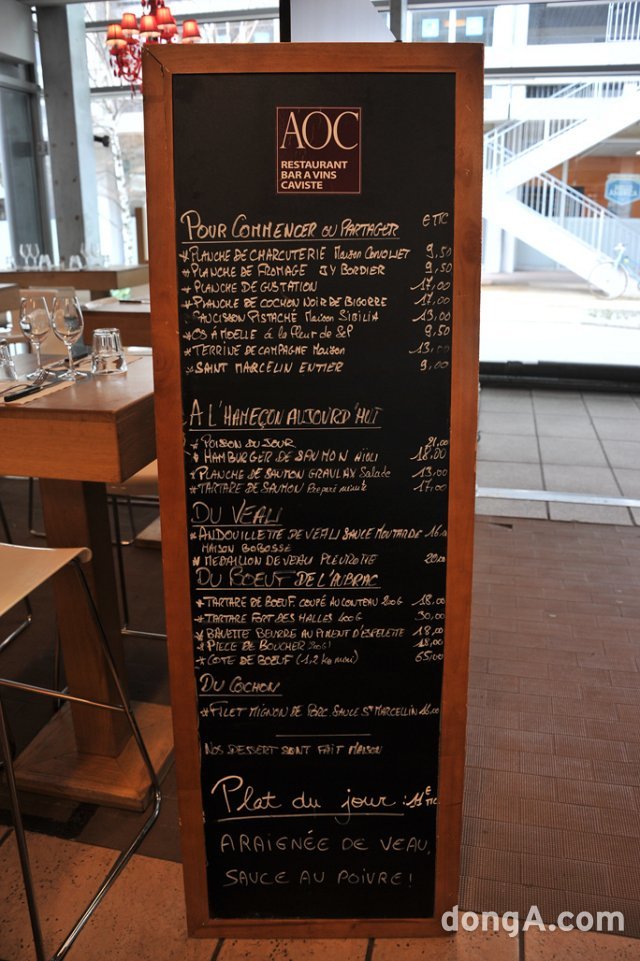 AOC
RESTAURANT
BAR A VINS
CAVISTE
POUR COMMENCER OU PARTAGER € TTC
*PLANCHE DE CHARCUTERIE Maison 9,50
*PLANCHE DE FROMAGE J Y BORDIER 9,50
*PLANCHE DEGUSTATION 17,00
*PLANCHE DE COCHON NOIR DE BIGORRE 17,00
*SAUCISSON PISTACHÉ Maison SIBILIA 13,00
*OS A MOELLE à la fleur de Sel 9,50
*TERRINE DE CAMPAGNE Maison 13,00
*SAINT MARCELIN ENTIER 9,00
A L'HAMEÇON AUJOURD'HUI
*POISON DU JOUR 21,00
*HAMBURGER DE SAUMON AIOLI 18,00
*PLANCHE DE SAUMON GRAVLAX Salade 13,00
*TARTARE DE SAUMON Préparé minute 17,00
DU VEAU
*ANDOUILLETTE DE VEAU SAUCE MOUTARDE 16,00
MAISON BOBOSSE
*MEDAILLON DE VEAU PLEUROTTE 20,00
DU BOEUF DE L'AUBRAC
*TARTARE DE BOEUF COUPÉ AU COUTEAU 200G 18,00
*TARTARE FORT DES HALLES 400G 30,00
*BAVETTE BEURRE AU PIMENT D'ESPELETTE 18,00
*PIECE DE BOUCHER 18,00
*COTE DE BOEUF (1,2 kg mini) 65,00
DU COCHON
*FILET MIGNON DE PORC SAUCE St MARCELLIN 16,00
NOS DESSERT SONT FAIT MAISON
Plat du jour : 11€ TTC
ARAIGNÉE DE VEAU,
SAUCE AU POIVRE !
dongA.com